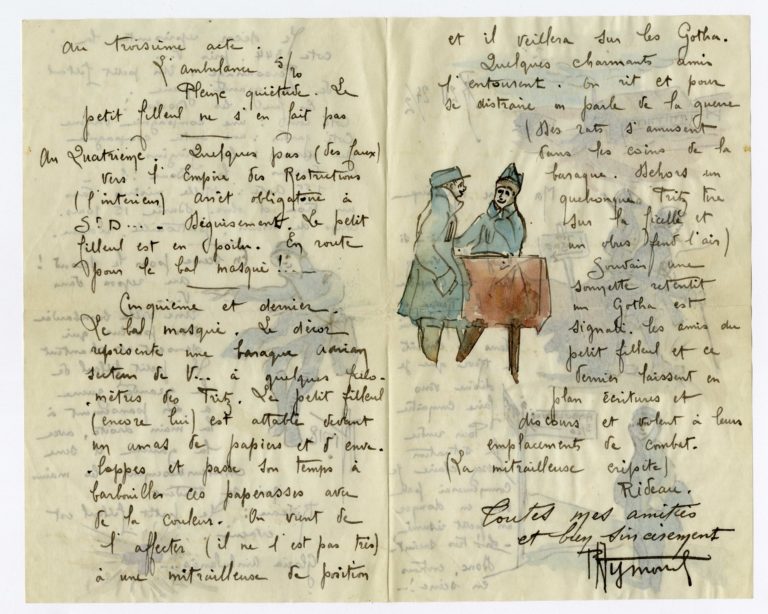 au troisième acte.
L'ambulance 5/20
Pleine quiétude. Le
petit filleul ne s'en fait pas
Au Quatrième. Quelques pas (des faux)
vers l'Empire des Restrictions
(l'intérieur) arrêt obligatoire à
St D... . Déguisement. Le petit
filleul est en poilu. En route
pour le bal masqué !...
Cinquième et dernier.
Le bal masqué. Le décor
représente une baraque Adrian
secteur de V... à quelques kilo-
-mètres des Fritz. Le petit filleul
(encore lui) est attablé devant
un amas de papiers et d'enve-
-loppes et passe son temps à
barbouiller ces paperasses avec
de la couleur. On vient de
l'affecter (il ne l'est pas très)
à une mitrailleuse de position
et il veillera sur les Gotha.
Quelques charmants amis
l'entourent. On rit et pour
se distraire on parle de la guerre
(Des rats s'amusent
dans les coins de la
baraque. Dehors un
quelconque Fritz tire
sur la ficelle et
un obus fend l'air)
Soudain une
sonnette retentit
un Gotha est
signalé. Les amis du
petit filleul et ce
dernier laissent en
plan écritures et
discours et volent à leurs
emplacements de combat.
(La mitrailleuse crépite)
Rideau.
Toutes mes amitiés
et bien sincèrement